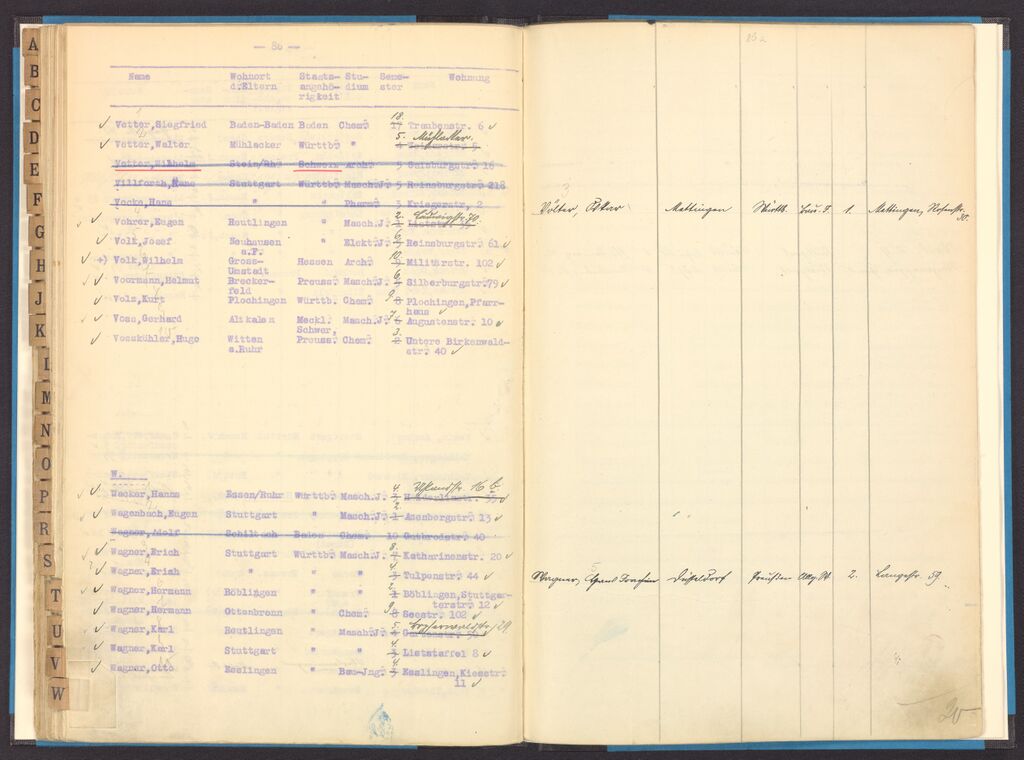 A
B
C
D
E
F
G
H
J
K
L
M
N
O
P
R
S
T
U
V
W
— 86 —
Name Wohnort d.Eltern Staatsangehörigkeit Studium Semester Wohnung
Vetter,Siegfried Baden-Baden Baden Chem. 18. 17 Traubenstr. 6
Vetter,Walter Mühlacker Württb. " 5. 4 Mühlacker.
Vetter,Wilhelm Stein/Rh. Schweiz Arch. 5 Gaisburgstr. 16
Villforth,Hans Stuttgart Württb. Masch.J. 5 Reinsburgstr. 218
Vocke,Hans " " Pharm. 3 Kriegerstr. 2
Vohrer,Eugen Reutlingen " Masch.J. 2. 1 Ludwigstr. 70.
Volk,Josef Neuhausen a.F. " Elekt.J. 6. Reinsburgstr. 61
+) Volk,Wilhelm Gross-Umstadt Hessen Arch. 10. 9 Militärstr. 102
Voormann,Helmut Breckerfeld Preuss. Masch.J. 6. Silberburgstr.79
Volz,Kurt Plochingen Württb. Chem. 9. 8 Plochingen,Pfarrhaus
Voss,Gerhard Alt Kalen Meckl. Schwer. Masch.J. 7. Augustenstr. 10
Vosskühler,Hugo Witten a.Ruhr Preuss. Chem. 3. 2 Untere Birkenwaldstr. 40
W.
Wacker,Hanns Essen/Ruhr Württb. Masch.J. 4. 3 Uhlandstr. 16 b
Wagenbach,Eugen Stuttgart " Masch.J. 2. 1 Asenbergstr. 13
Wagner,Adolf Schiltach Baden Chem. 10 Gutbrodstr. 40
Wagner,Erich Stuttgart Württb. Masch.J. 8. 7 Katharinenstr. 20
Wagner,Erich " " " 4. 3 Tulpenstr. 44
Wagner,Hermann Böblingen " " Böblingen,Stuttgarterstr. 12
Wagner,Hermann Ottenbronn " Chem. 9. 8 Seestr. 102
Wagner,Karl Reutlingen " Masch.J. 5. 4
Wagner,Karl Stuttgart " " 4. 3 Liststaffel 8
Wagner,Otto Esslingen " Bau-Jng. 4. 3 Esslingen,Kiesstr. 11
85a
Völter, Oskar Mettingen Württb. Bau. J. 1. Mettingen, Rosenstr. 30.
Wagner, Hans Joachim Düsseldorf Preußen 2. Langestr. 59.
20